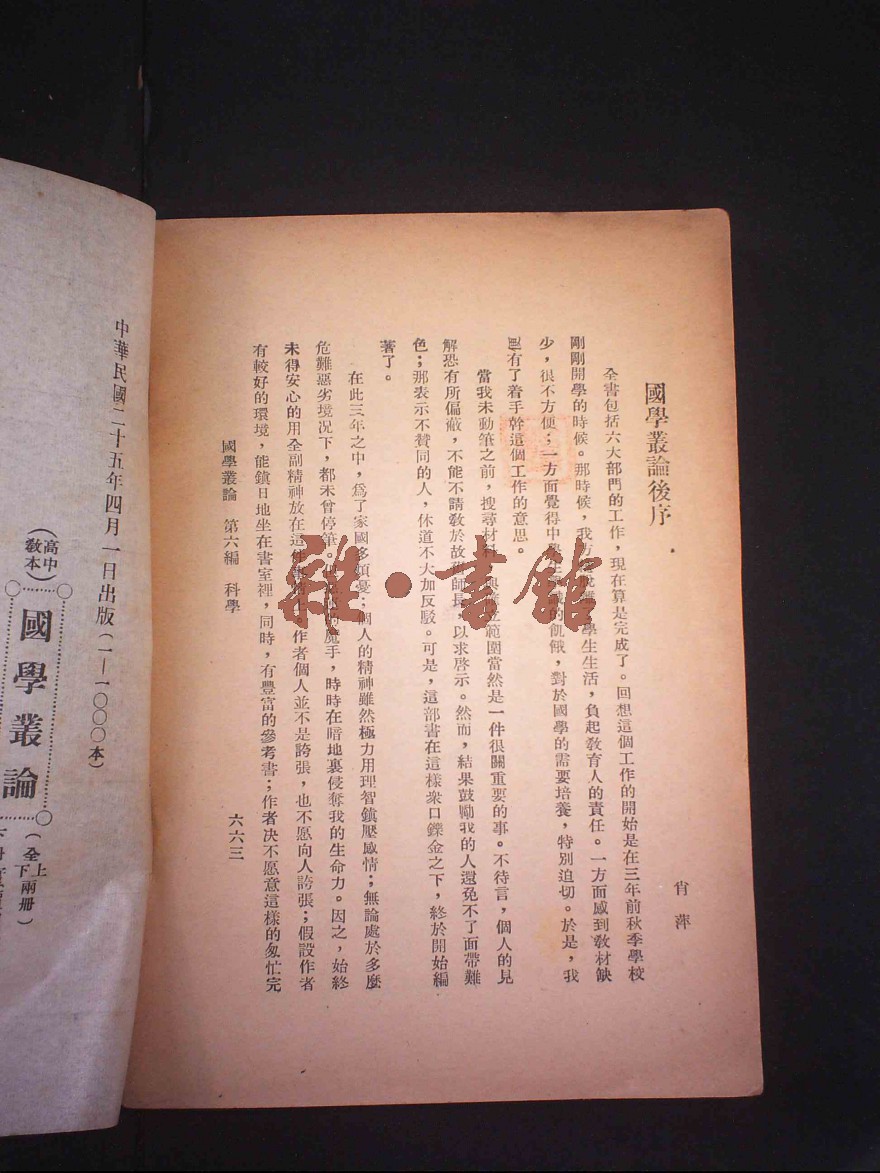 國學叢論後序
肖萍
全書包括六大部門的工作，現在算是完成了。回想這個工作的開始是在三年前秋季學校
剛剛開學的時候。那時候，我方學生生活，負起教育人的責任。一方面感到教材缺
少，很不方便；一方面覺得中的飢餓，對於國學的需要培養，特別迫切。於是，我
有了着手幹這個工作的意思。
當我未動筆之前，搜尋材範圍當然是一件很關重要的事。不待言，個人的見
解恐有所偏蔽，不能不請教於故師長，以求啓示。然而，結果鼓勵我的人還免不了面帶難
色；那表示不贊同的人，休道不大加反駁。可是，這部書在這樣衆口鑠金之下，終於開始編
著了。
在此三年之中，爲了家國多煩憂；個人的精神雖然極力用理智鎮壓感情；無論處於多麼
危難惡劣境况下，都未曾停筆。魔手，時時在暗地裏侵奪我的生命力。因之，始終
未得安心的用全副精神放在這上。作者個人並不是誇張，也不愿向人誇張；假設作者
有較好的環境，能鎮日地坐在書室裡，同時，有豐富的參考書；作者决不愿意這樣的匆忙完
國學叢論 第六編 科學 六六三
雜·書館
中華民國二十五年四月一日出版（一—一〇〇〇本）
（高中教本）
國學叢論
（全上下兩册）